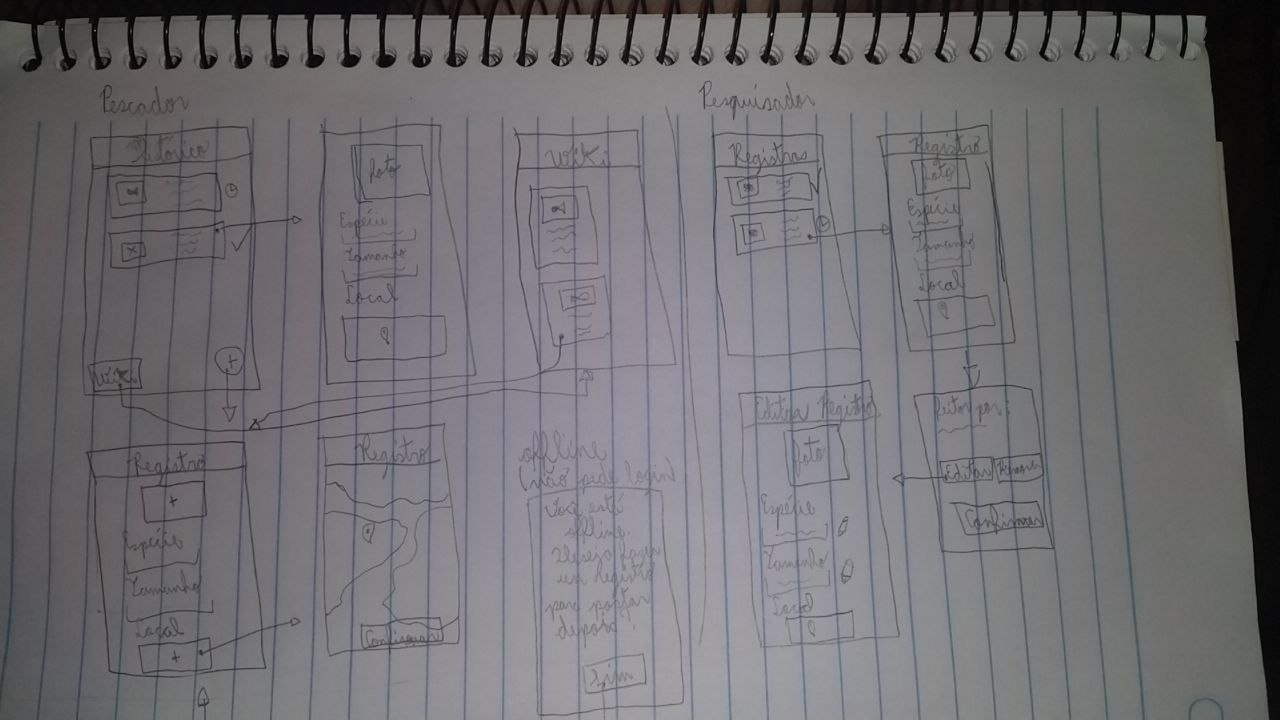 Pescador
Histórico
Wiki
foto
Espécie
Tamanho
Local
Wiki
Registro
+
Espécie
Tamanho
Local
+
Registro
Confirmar
offline
não pede login
Você está
offline.
Deseja fazer
um registro
para postar
depois?
Sim
Pesquisador
Registros
Registro
foto
Espécie
Tamanho
Local
feitor por:
Editar Remover
Confirmar
Editar Registro
foto
Espécie
Tamanho
Local